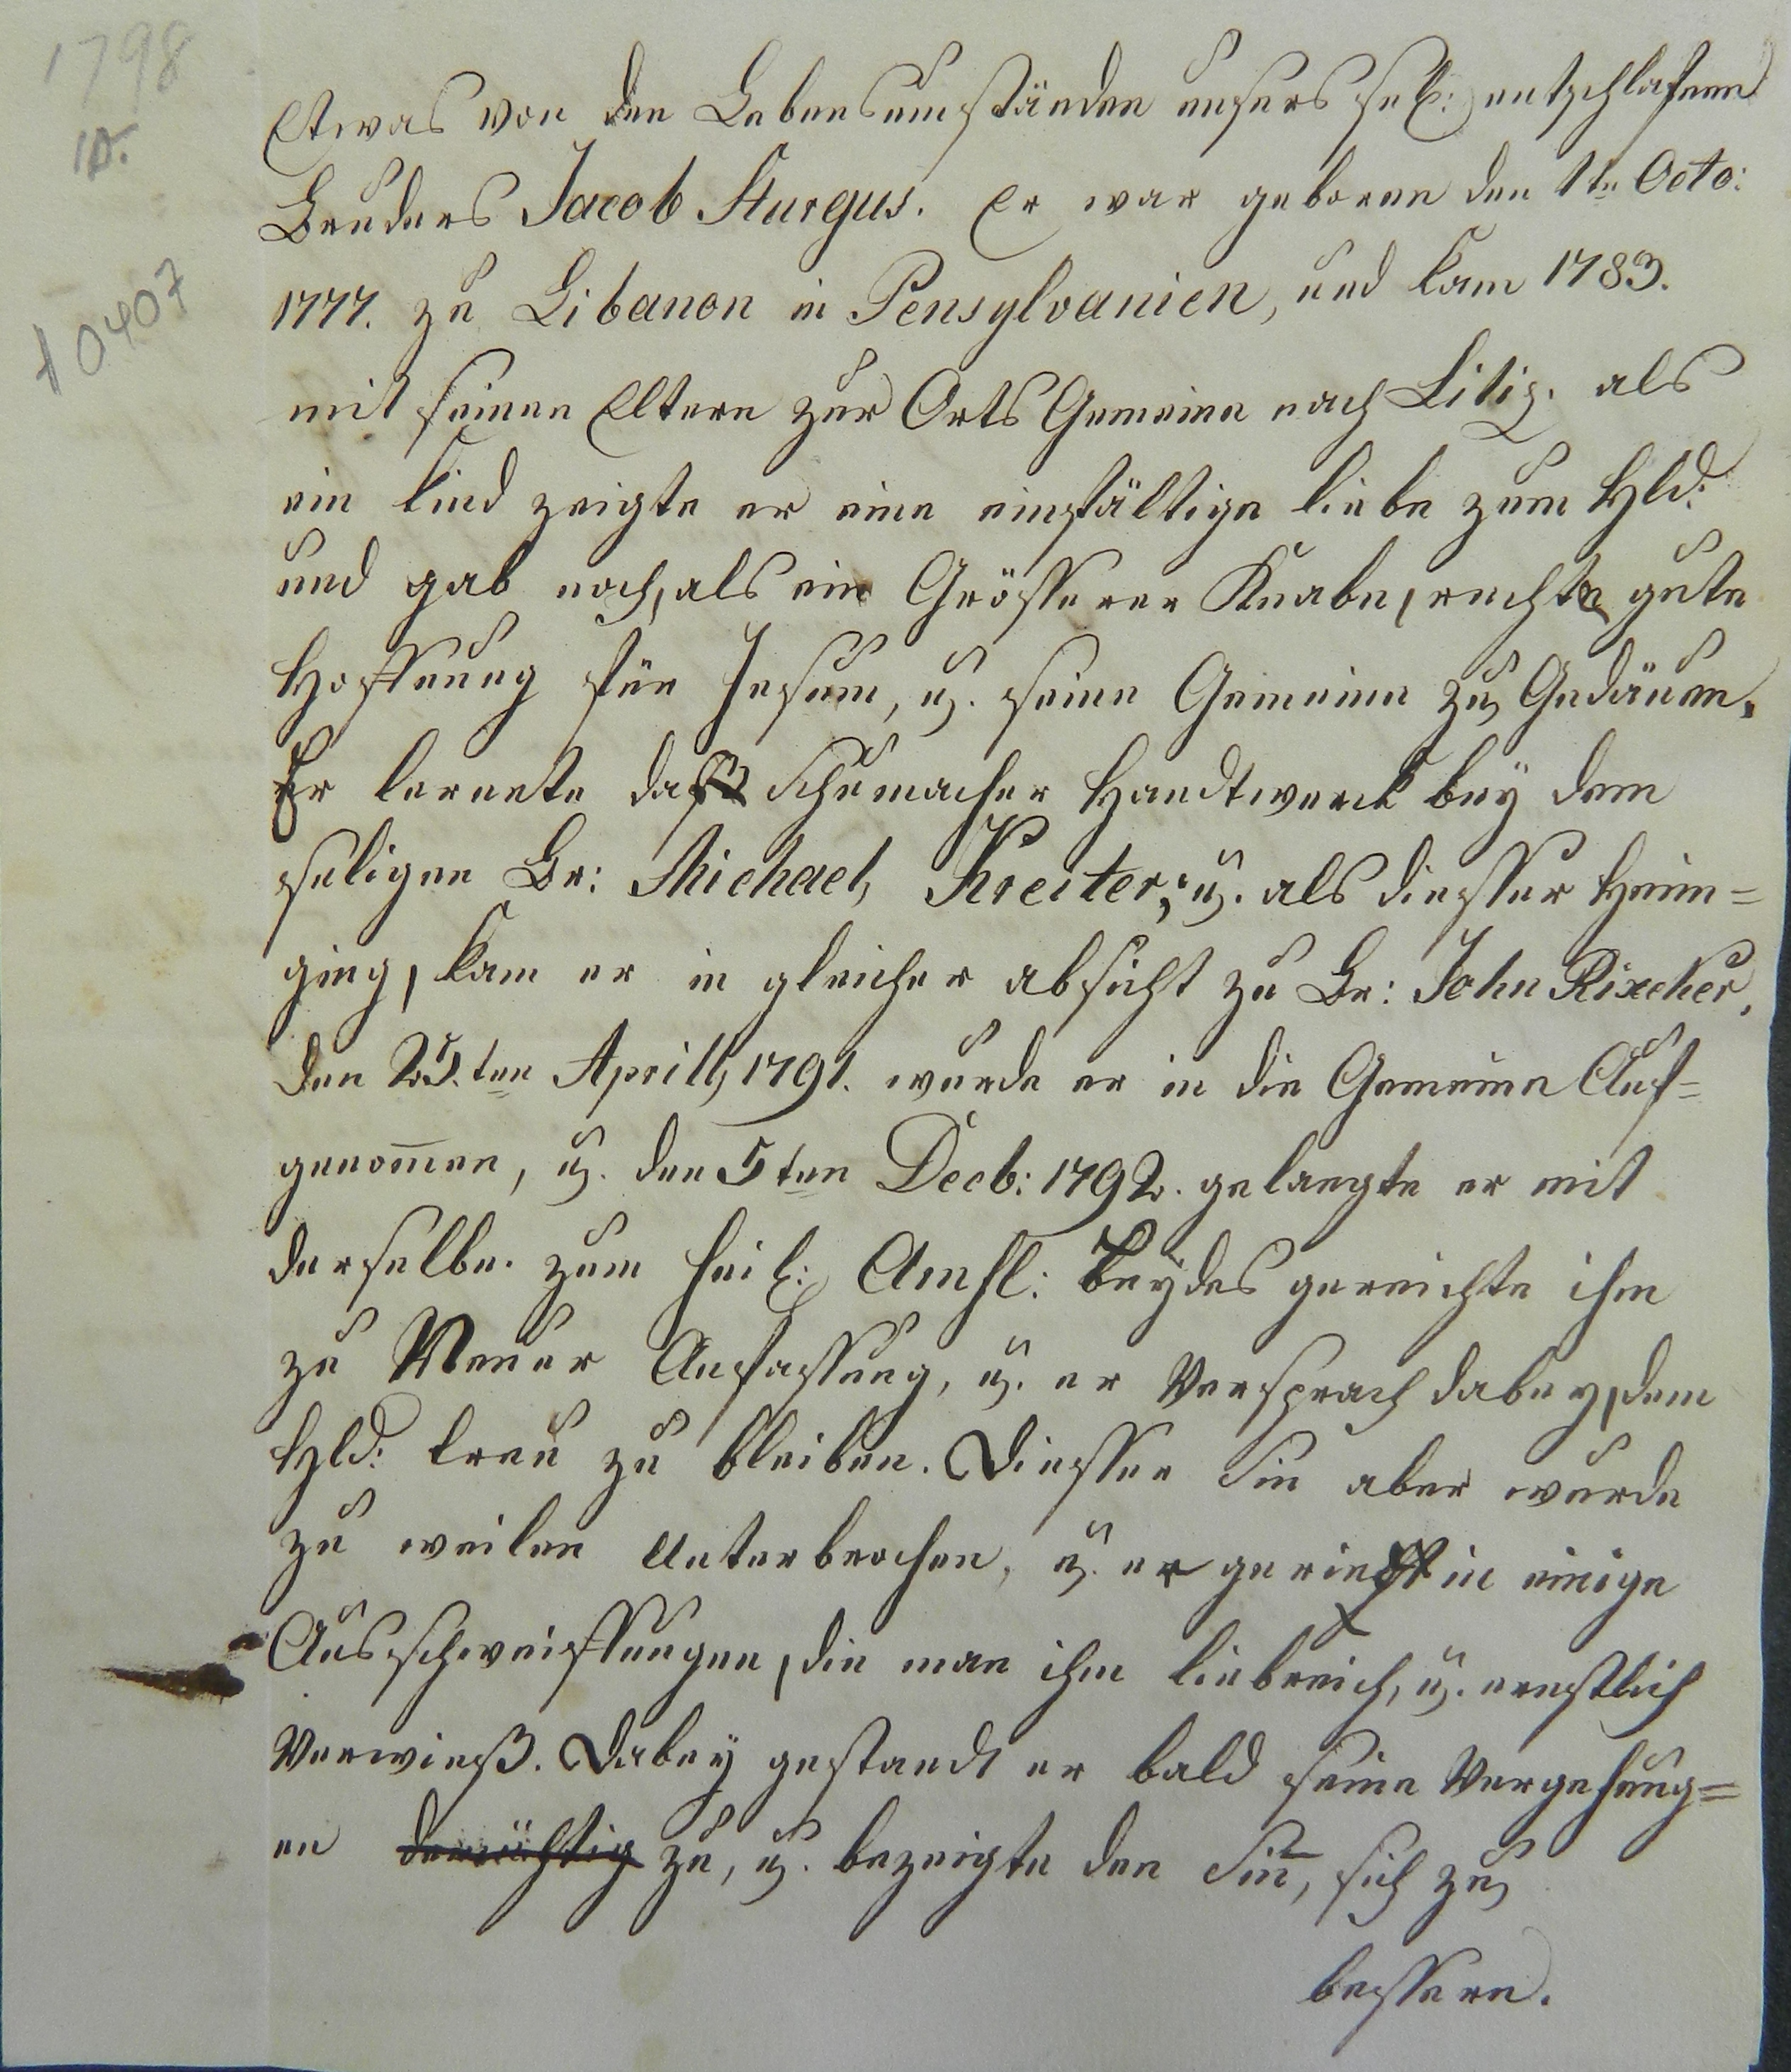 1798
10.
10407
Etwas von den Lebensumständen unsers sel: entschlafnen
Bruders Jacob Sturgus. Er war geboren den 1te Octo:
1777. zu Libanon in Pensylvanien, und kam 1783.
mit seinen Eltern zur Orts Gemeine nach Litiz. als
ein kind zeigte er eine einfältige liebe zum Hld:
und gab noch, als ein Grösserer Knabe, rechte gute
Hoffnung für Jesum, u. seine Gemeine zu Gedäuen.
Er lernete daß Schumacher Handtwerck bey dem
seligen Br: Michael, Kreiter, u. als diesser Heim=
ging, kam er in gleicher absicht zu Br: John Rixeker,
den 25.ten Aprill, 1791. wurde er in die Gemeine Auf=
genom̅en, u. den 5ten Decb: 1792. gelangte er mit
derselbe. zum heil: Amhl: Beydes gereichte ihm
zu Neuer Anfassung, u. er Versprach dabey, dem
Hld: treu zu bleiben. Diesser Sin aber wurde
zu weilen Unterbrochen, u. er gerieht in einige
Ausschweiffungen, die man ihm liebreich, u. ernstlich
Verwieß. Dabey gestandt er bald seine Vergehung=
en demüthig zu, u. bezeigte den Sin̅, sich zu
bessern.